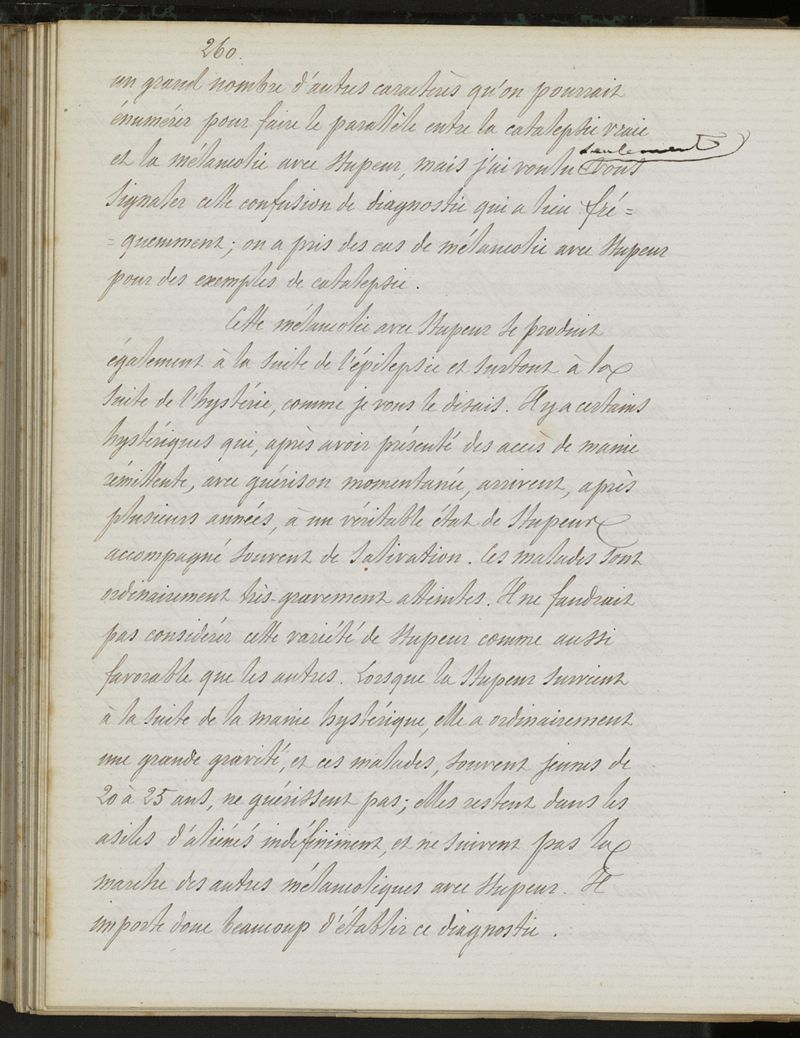 260.
un grand nombre d'autres caractères qu'on pourrait
énumérer pour faire le parallèle entre la catalepsie vraie
et la mélancolie avec stupeur, mais j'ai voulu seulement vous
signaler cette confusion de diagnostic qui a lieu fré=
=quemment; on a pris des cas de mélancolie avec stupeur
pour des exemples de catalepsie.
Cette mélancolie avec stupeur se produit
également à la suite de l'épilepsie et surtout à la
suite de l'hystérie, comme je vous le disais. Il y a certains
hystériques qui, après avoir présenté des accès de manie
rémittente, avec guérison momentanée, arrivent, après
plusieurs années, à un véritable état de stupeur
accompagné souvent de salivation. Ces malades sont
ordinairement très-gravement atteintes. Il ne faudrait
pas considérer cette variété de stupeur comme aussi
favorable que les autres. Lorsque la stupeur survient
à la suite de la manie hystérique, elle a ordinairement
une grande gravité, et ces malades, souvent jeunes de
20 à 25 ans, ne guérissent pas; elles restent dans les
asiles d'aliénés indéfiniment, et ne suivent pas la
marche des autres mélancoliques avec stupeur. Il
importe donc beaucoup d'établir ce diagnostic.